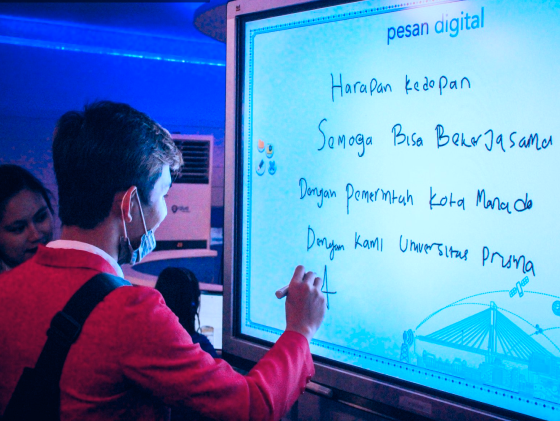 pesan digital
Harapan Kedepan
Semoga Bisa Bekerjasama
Dengan Pemerintah Kota Manado
Dengan Kami Universitas Prisma